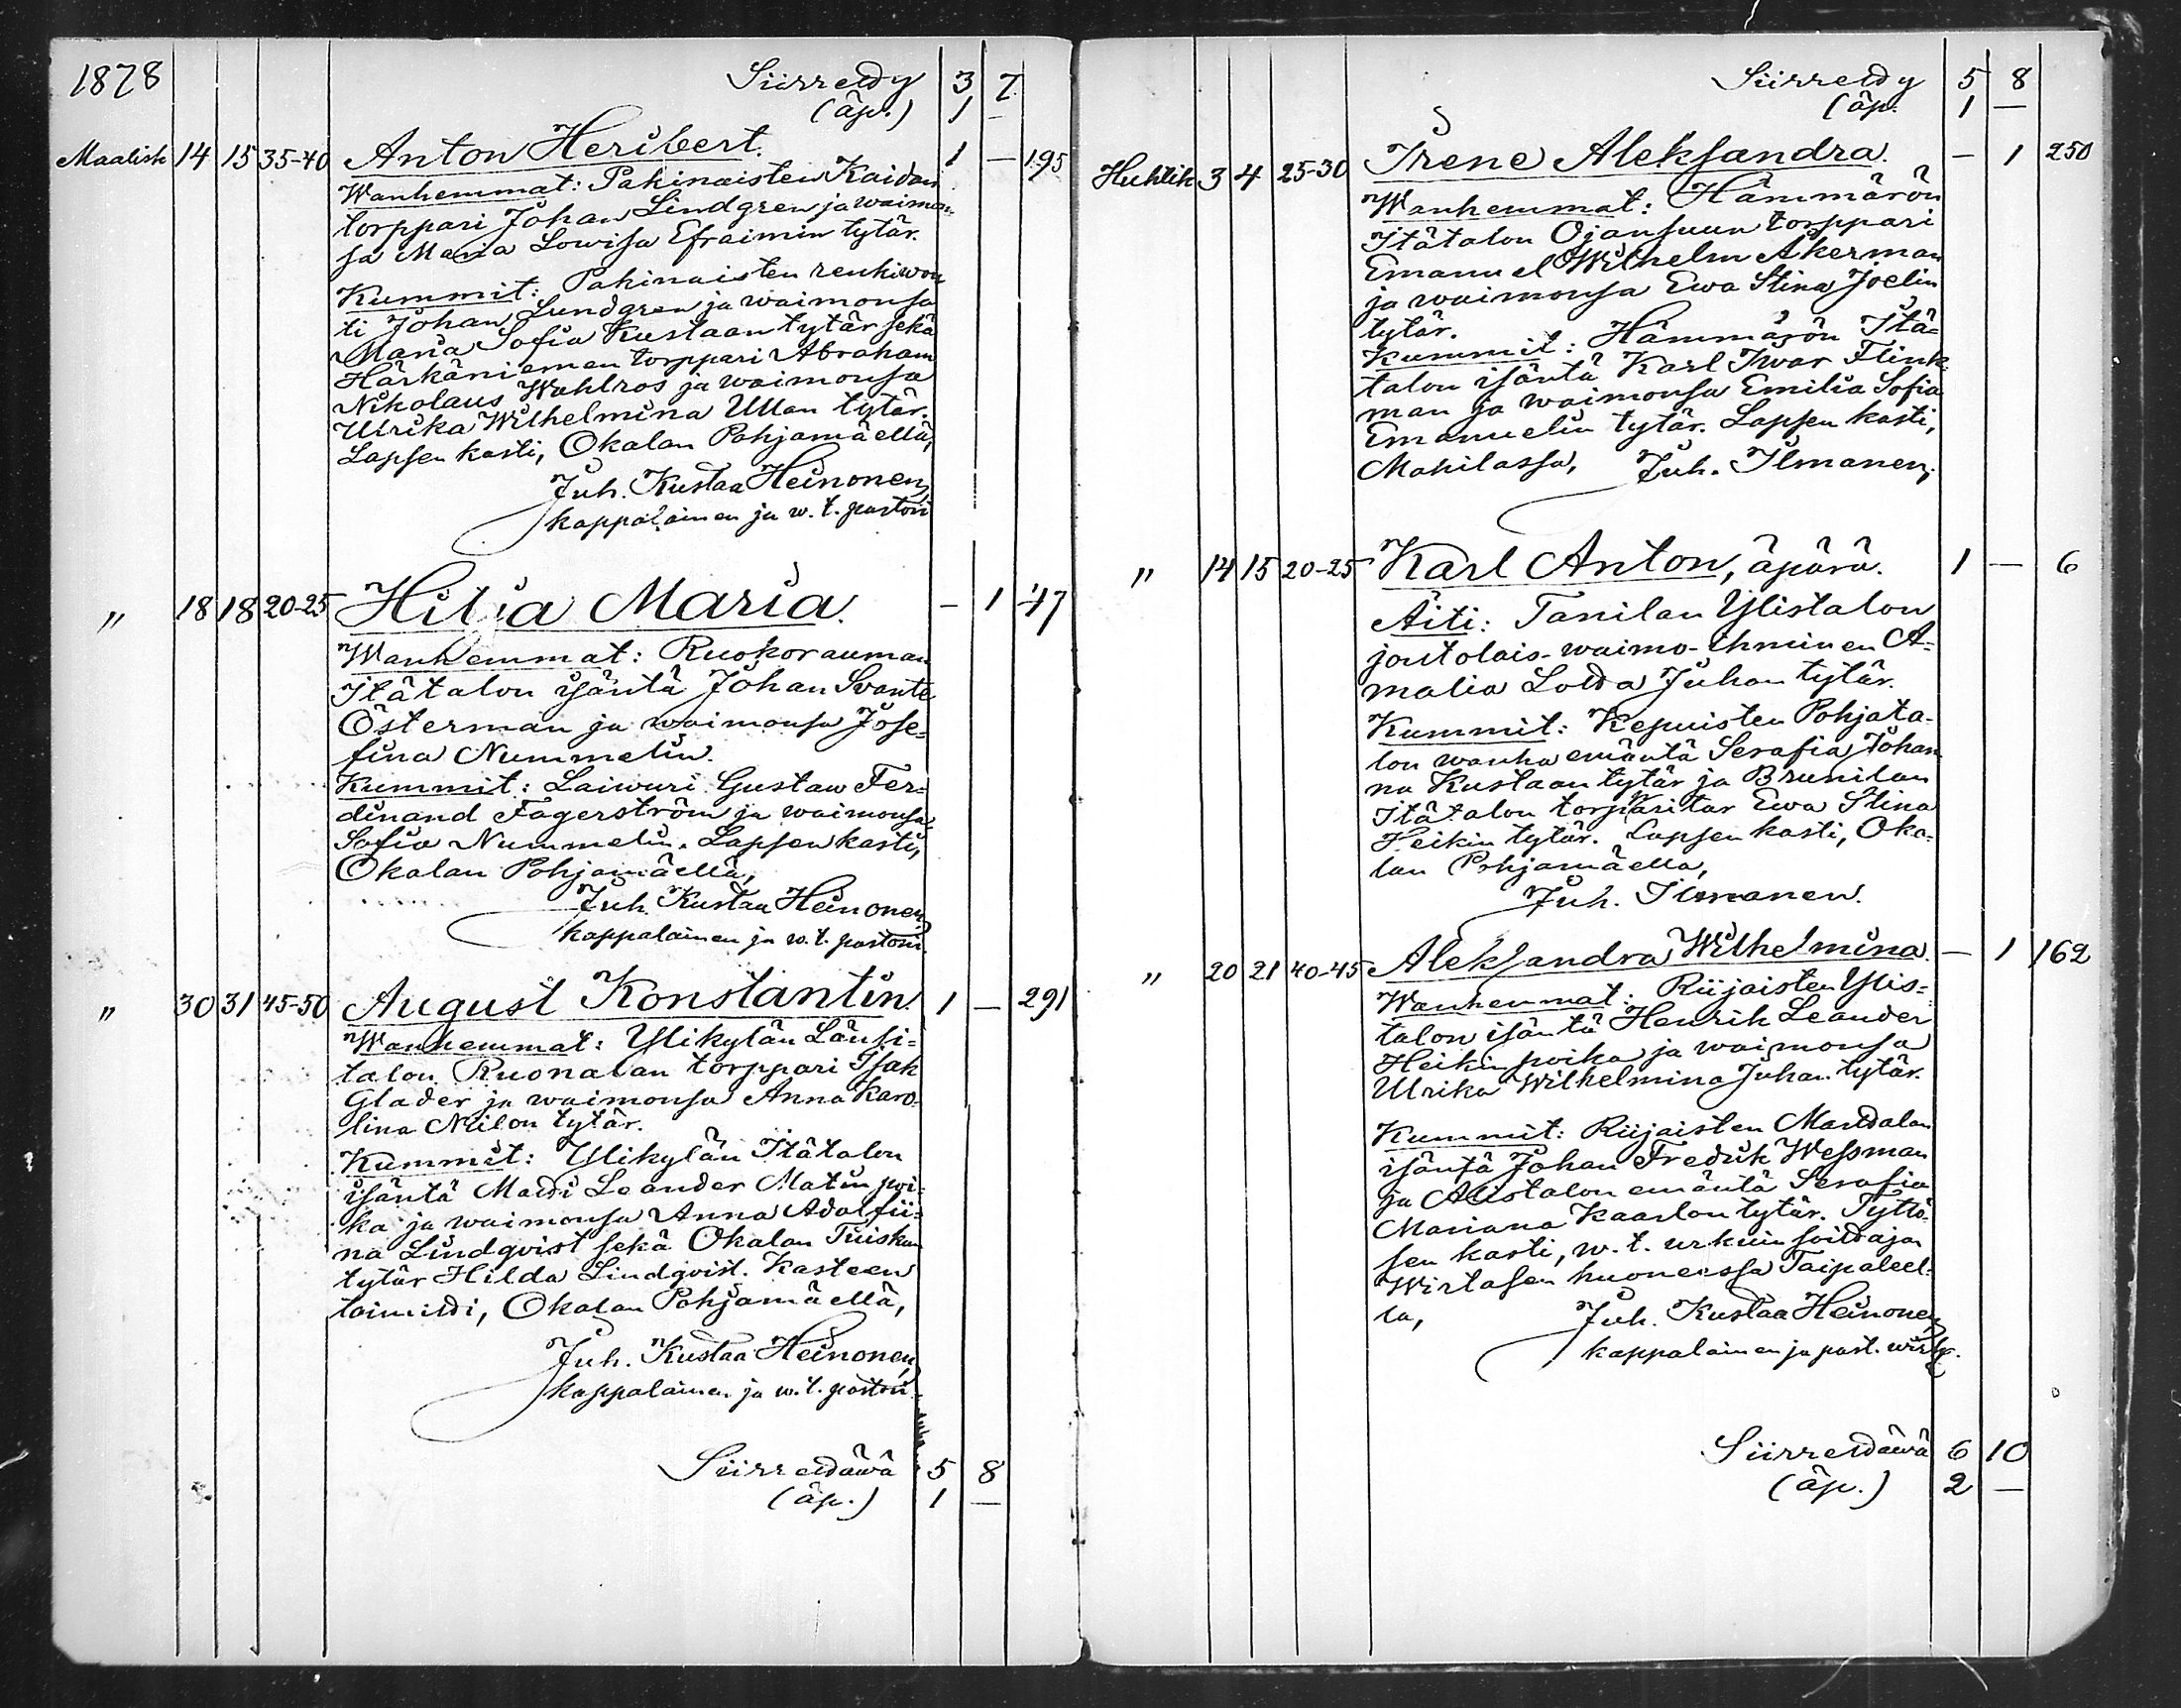 1878 Siirretty 3 7
(äp.) 1 —
Maalisk 14 15 35-40 Anton Heribert. 1 — 195
Wanhemmat: Pakinaisten Kaidan
torppari Johan Lindgren ja waimon-
sa Maria Lowisa Efraimin tytär.
Kummit: Pakinaisten renkiwou
ti Johan Lundgren ja waimonsa
Maria Sofia Kustaan tytär sekä
Härkäniemen torppari Abraham
Nikolaus Wahlros ja waimonsa
Ulrika Wilhelmina Ullan tytär.
Lapsen kasti, Okalan Pohjamäellä,
Juh. Kustaa Heinonen,
kappalainen ja w. t. pastori
" 18 18 20-25 Hilja Maria. — 1 47
Wanhemmat: Ruokorauman
Itätalon isäntä Johan Svante
Österman ja waimonsa Jose=
fina Nummelin.
Kummit: Laiwuri Gustaw Fer=
dinand Fagerström ja waimonsa
Sofia Nummelin. Lapsen kasti,
Okalan Pohjamäellä,
Juh. Kustaa Heinonen,
kappalainen ja w. t. pastori.
" 30 31 45-50 August Konstantin. 1 — 291
Wanhemmat: Ylikylän Länsi=
talon Ruonalan torppari Isak
Glader ja waimonsa Anna Karo-
lina Niilon tytär.
Kummit: Ylikylän Itätalon
isäntä Matti Leander Matin poi-
ka ja waimonsa Anna Adolfii=
na Lindqvist sekä Okalan Tuiskun
tytär Hilda Lindqvist. Kasteen
toimitti, Okalan Pohjamäellä,
Juh. Kustaa Heinonen,
kappalainen ja w. t. pastori
Siirrettäwä 5 8
(äp.) 1 —
Siirretty 5 8
(äp. 1 —
Huhtik 3 4 25-30 Irene Aleksandra. — 1 250
Wanhemmat: Hämmärön
Itätalon Ojansuun torppari
Emanuel Wilhelm Åkerman
ja waimonsa Ewa Stina Joelin
tytär.
Kummit: Hämmärön Itä=
talon isäntä Karl Iwar Flink-
man ja waimonsa Emilia Sofia
Emanuelin tytär. Lapsen kasti,
Mahilassa, Juh. Ilmanen,
" 14 15 20-25 Karl Anton, äpärä. 1 — 6
Äiti: Tanilan Ylistalon
joutolais-waimo-ihminen A-
malia Lotta Juhan tytär.
Kummit: Repuisten Pohjata-
lon wanha emäntä Serafia Johan
na Kustaan tytär ja Brunilan
Itätalon torpparitar Ewa Stina
Heikin tytär. Lapsen kasti, Oka-
lan Pohjamäellä,
Juh. Ilmanen.
" 20 21 40-45 Aleksandra Wilhelmina. — 1 162
Wanhemmat: Riijaisten Ylis=
talon isäntä Henrik Leander
Heikin poika ja waimonsa
Ulrika Wilhelmina Juhan tytär.
Kummit: Riijaisten Marttalan
isäntä Johan Fredrik Wessman
ja Alistalon emäntä Serafia
Mariana Kaarlon tytär. Tyttö-
sen kasti, w. t. urkuin soittajan
Wirtasen huoneessa Taipaleel-
la, Juh. Kustaa Heinonen,
kappalainen ja past. wirk.
Siirrettäwä 6 10
(äp.) 2 —